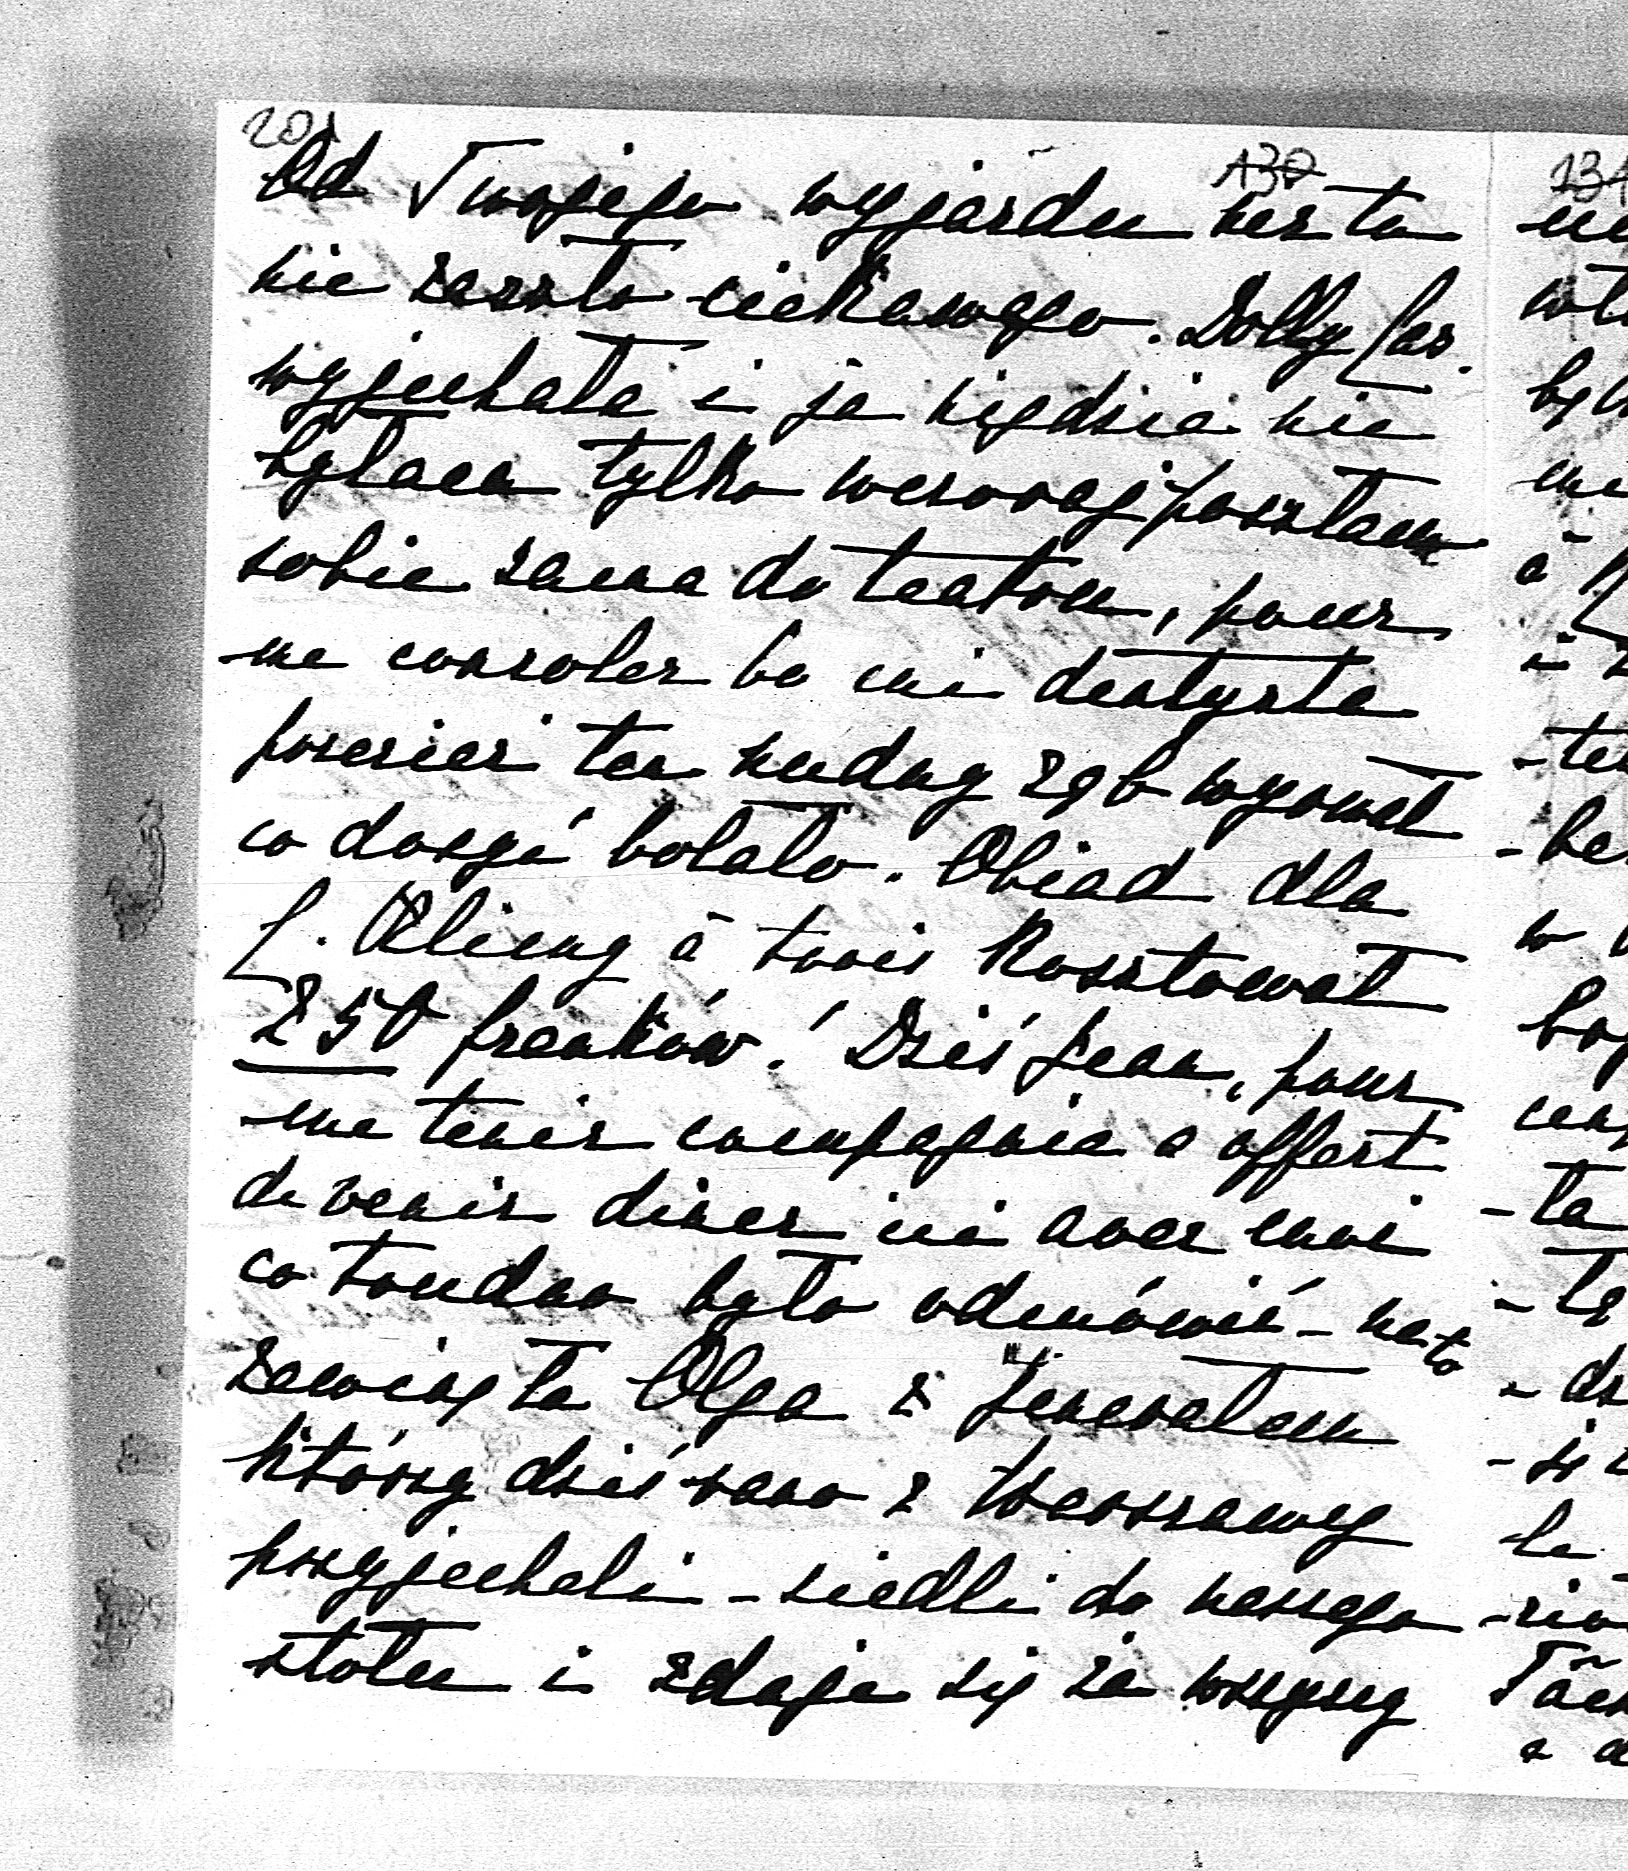 201
130
Od Twojego wyjazdu nic tu
nie zaszło ciekawego. Dolly
wyjechała i ja nigdzie nie
byłam tylko wczoraj poszłam
sobie sama do teatru, pour
me consoler bo mi dentysta
przecież ten nudny ząb wyrwał
co dosyć bolało. Obiad dla
f. Alieny à trois kosztował
250 franków! Dziś Jean, pour
me tenir compagnie a offert
de venir diner ici avec moi
co trudno było odmówić - na to
zawinęła Olga z Jenerałem
którzy dziś rano z Warszawy
przyjechali - siedli do naszego
stołu i zdaje się że wszyscy
131